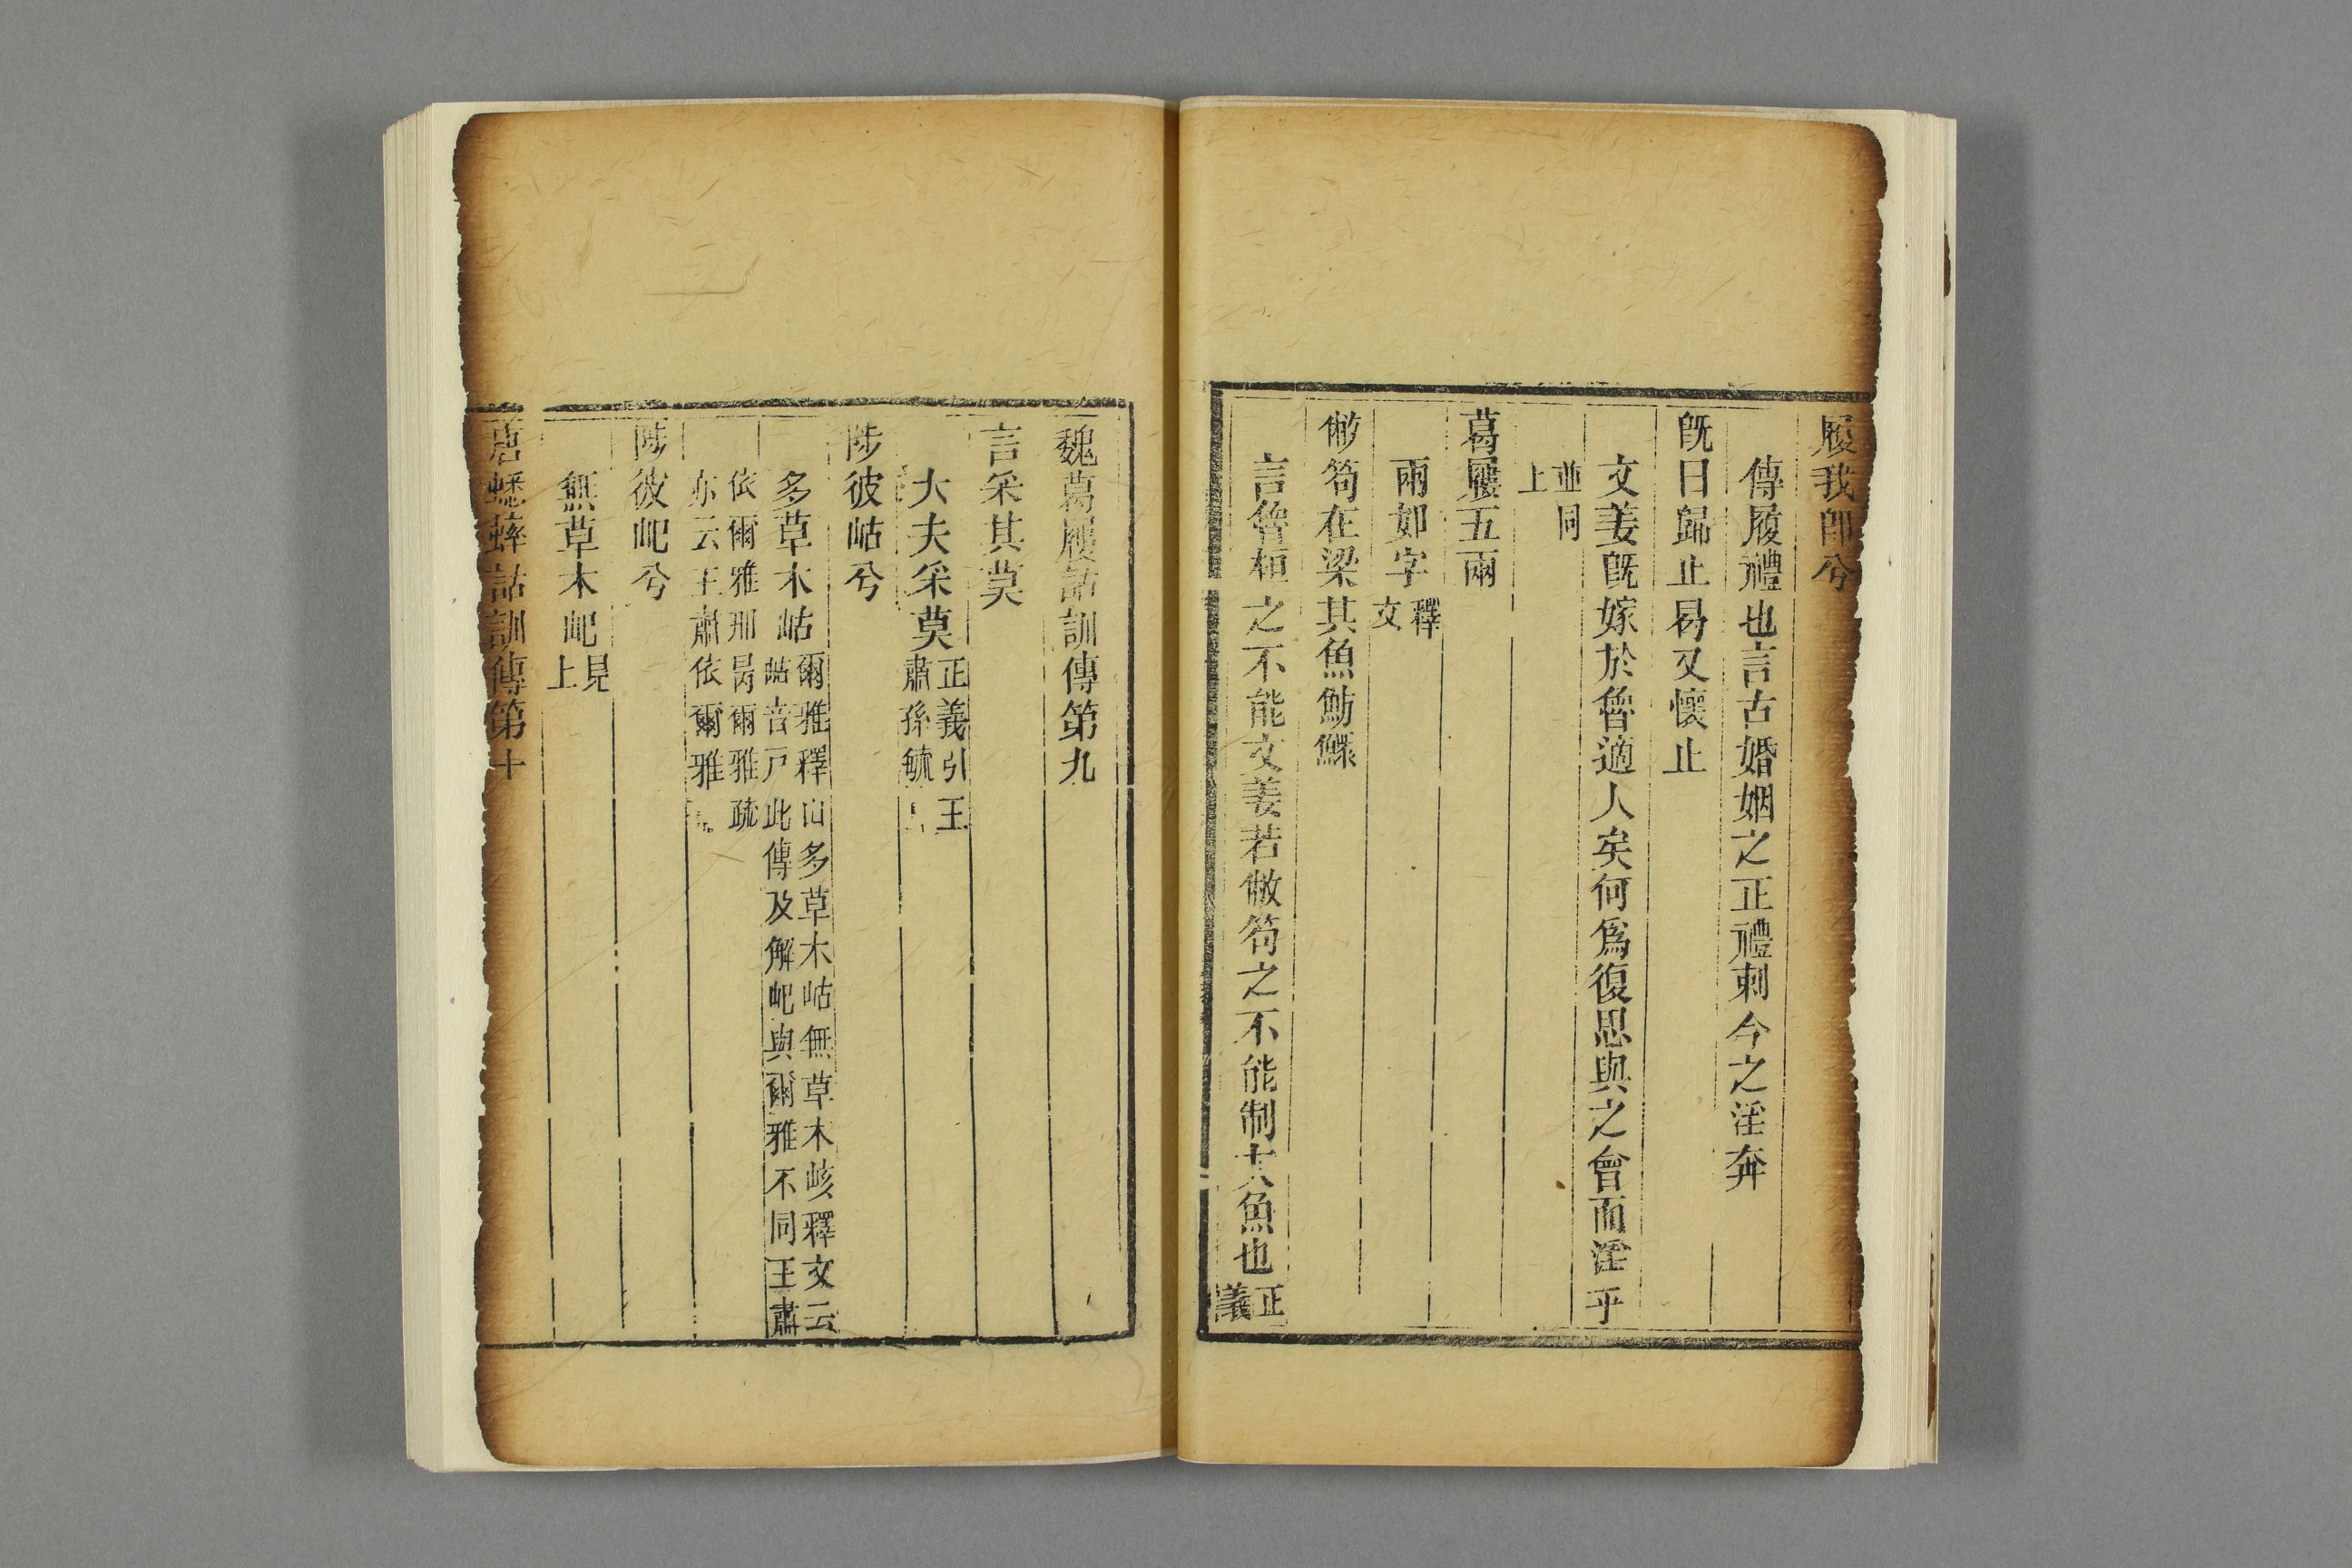 履我即兮
傳履禮也言古婚姻之正禮刺今之淫奔
旣曰歸止曷又懷止
文姜旣嫁於魯適人矣何爲復思與之會而淫乎
並同
上
葛屨五兩
兩如字釋
文
敝笱在梁其魚魴鰥
言魯桓之不能文姜若敝笱之不能制大魚也正
義
魏葛屨詁訓傳第九
言采其莫
大夫采莫正義引王
肅孫毓
陟彼岵兮
多草木岵爾雅釋山多草木岵無草木峐釋文云
岵音戸此傳及解屺與爾雅不同王肅
依爾雅邢昺爾雅疏
亦云王肅依爾雅
陟彼屺兮
無草木屺見
上
唐蟋蟀詁訓傳第十